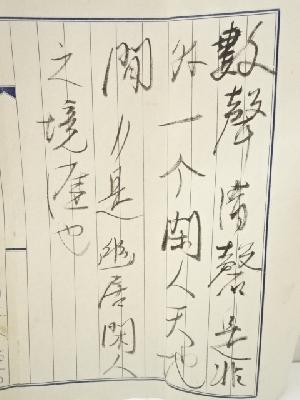 數聲清磬是非
外一个閑人天地
間〃是幽居閑人
之境涯也